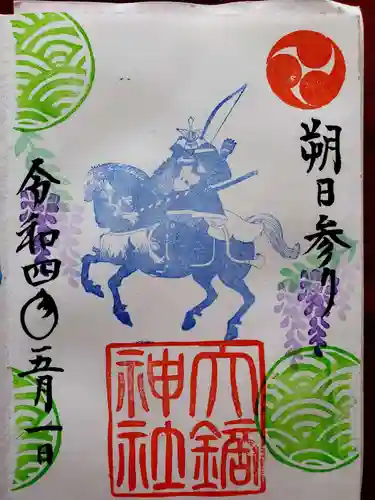 朔日参り
令和四年五月一日
六鎬
神社